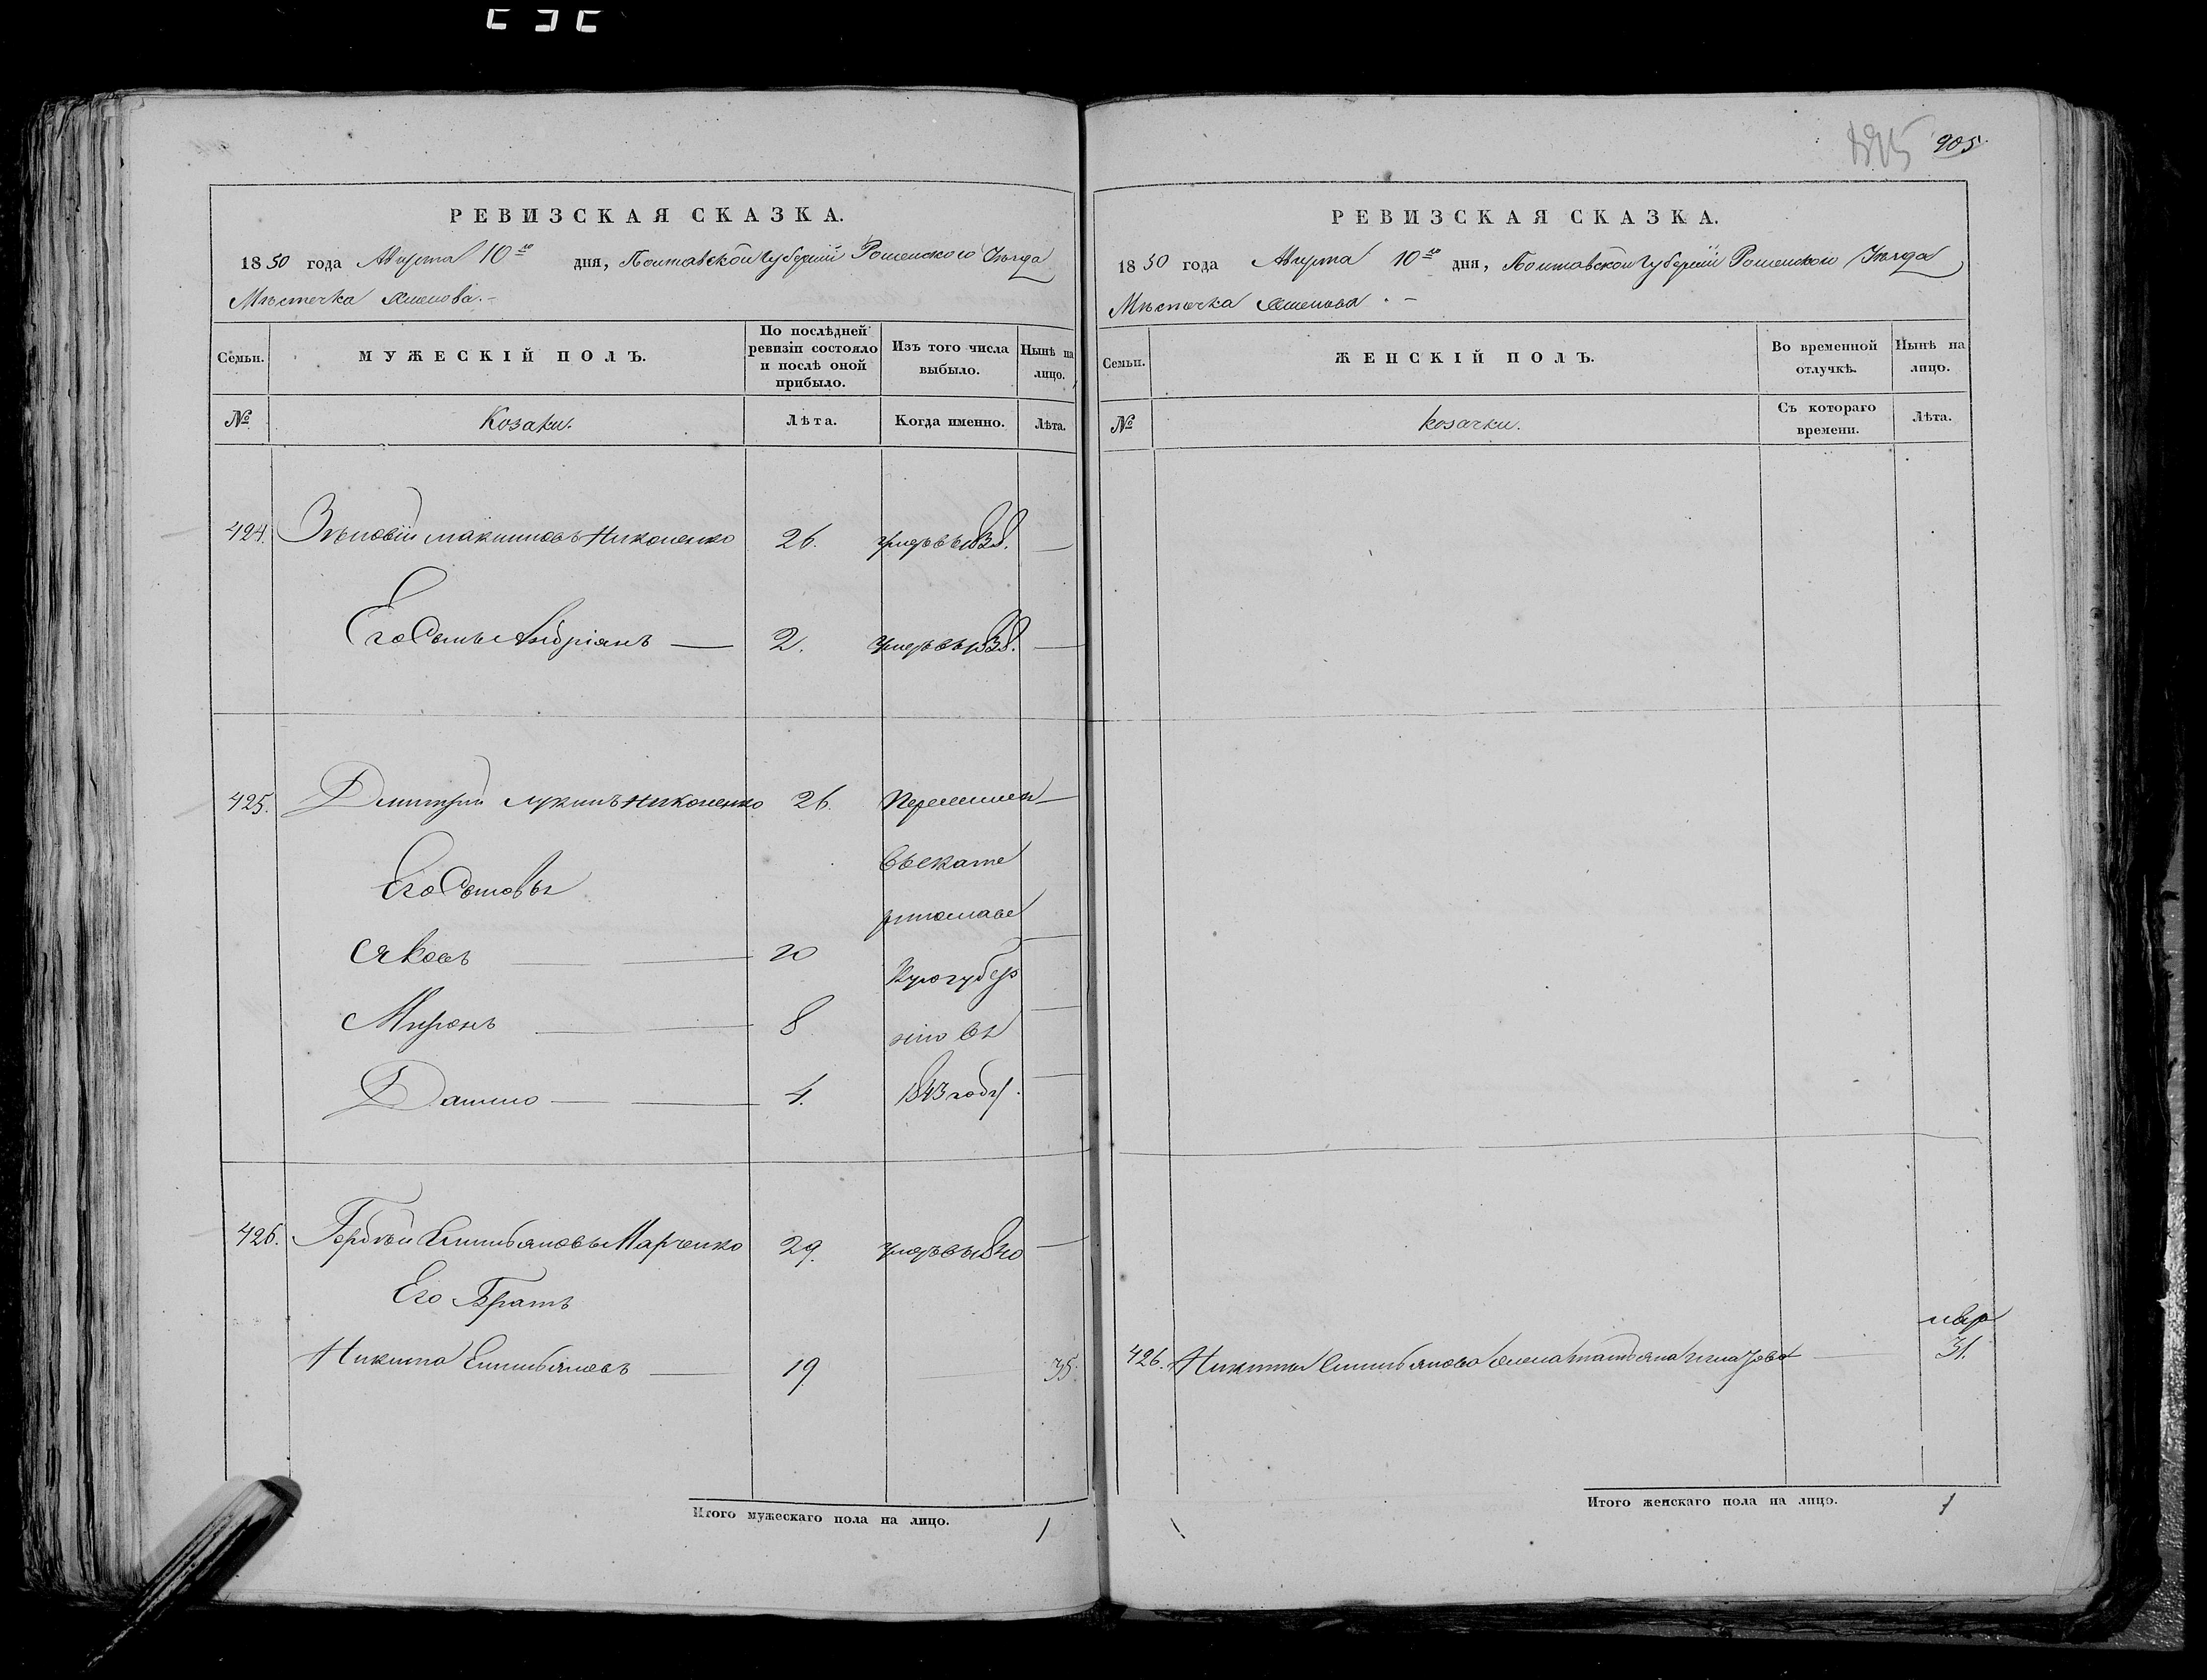 905
РЕВИЗСКАЯ СКАЗКА.
1850 года Августа 10го дня, Полтавской Губерніи Роменского Уѣзда
Мѣстечка
Семьи.
МУЖЕСКІЙ ПОЛЪ.
По послѣдней ревизіи состояло и послѣ оной прибыло.
Изъ того числа выбыло.
Нынѣ на лицо.
№
Козаки.
Лѣта.
Когда именно.
Лѣта.
424. Зѣновій Максимовъ Никоненко 26. умеръ въ 1838. —
Его Сынъ Андріянъ — 2. умеръ въ 1838. —
425. Дмитрій Лукинъ Никоненко 26. Переселен —
въ Екате
Его Сыновья
ринослав
Яковъ — — 20 —
скую губер
Миронъ — — 8 —
нію въ
Данило — — 4. —
1843 году.
426. Гордѣй Емельяновъ Марченко 29. умеръ въ 1840 —
Его Братъ
Никита Емельяновъ — 19 — 35.
Итого мужескаго пола на лицо. 1
РЕВИЗСКАЯ СКАЗКА.
1850 года Августа 10го дня, Полтавской Губерніи Роменского Уѣзда
Мѣстечка
Семьи.
ЖЕНСКІЙ ПОЛЪ.
Во временной отлучкѣ.
Нынѣ на лицо.
№
Козачки.
Съ котораго времени.
Лѣта.
426. Никиты Емельянова жена Татьяна Игнатова — 31.
Итого женскаго пола на лицо. 1